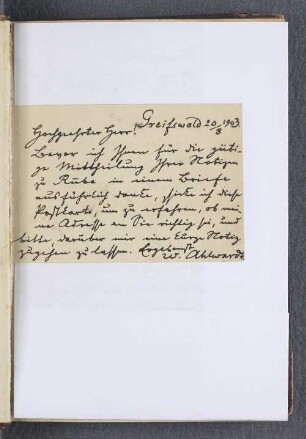 Greifswald 20/3 1903.
Hochgeehrter Herr!
Bevor ich Ihnen für die güti-
ge Mittheilung Ihrer Notizen
zu Rŭba in einem Briefe
ausführlich danke, schicke ich diese
Postkarte, um zu erfahren, ob mei-
ne Adresse an Sie richtig sei, und
bitte, darüber mir eine kurze Notiz
zugehen zu lassen. Ergebenst
W. Ahlwardt.